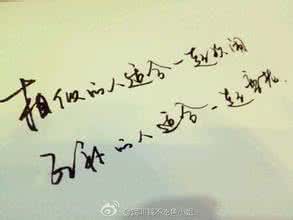 相似的人适合一起欢闹
互补的人适合一起变老